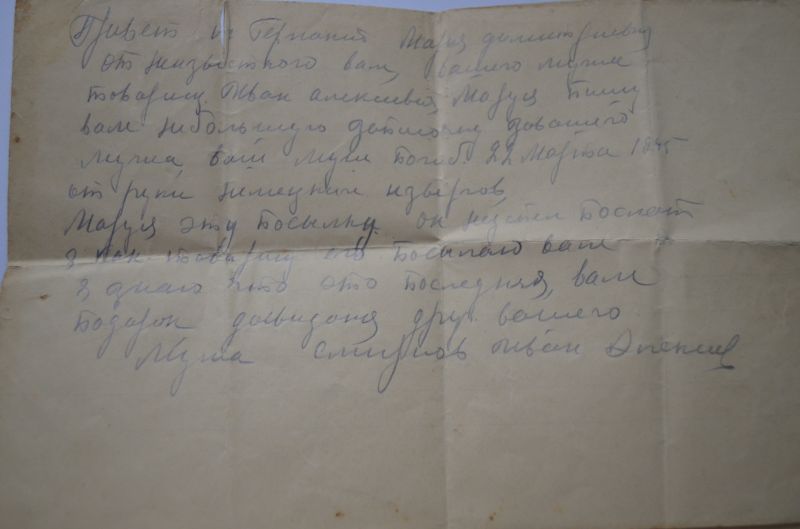 Привет из Германии Мария дмитриевна
от неизвестного вам, вашего мужа
товарищ Иван алексеевич Маруся Пишу
вам небольшую
мужа ваш муж Погиб 22 Марта 1945
от руки немецких извергов
Маруся эту Посылку он хотел Послать
я как товарищ его Посылаю вам
я думаю что это Последняя вам
Подарок досвидания друг вашего
Мужа Смирнов Иван